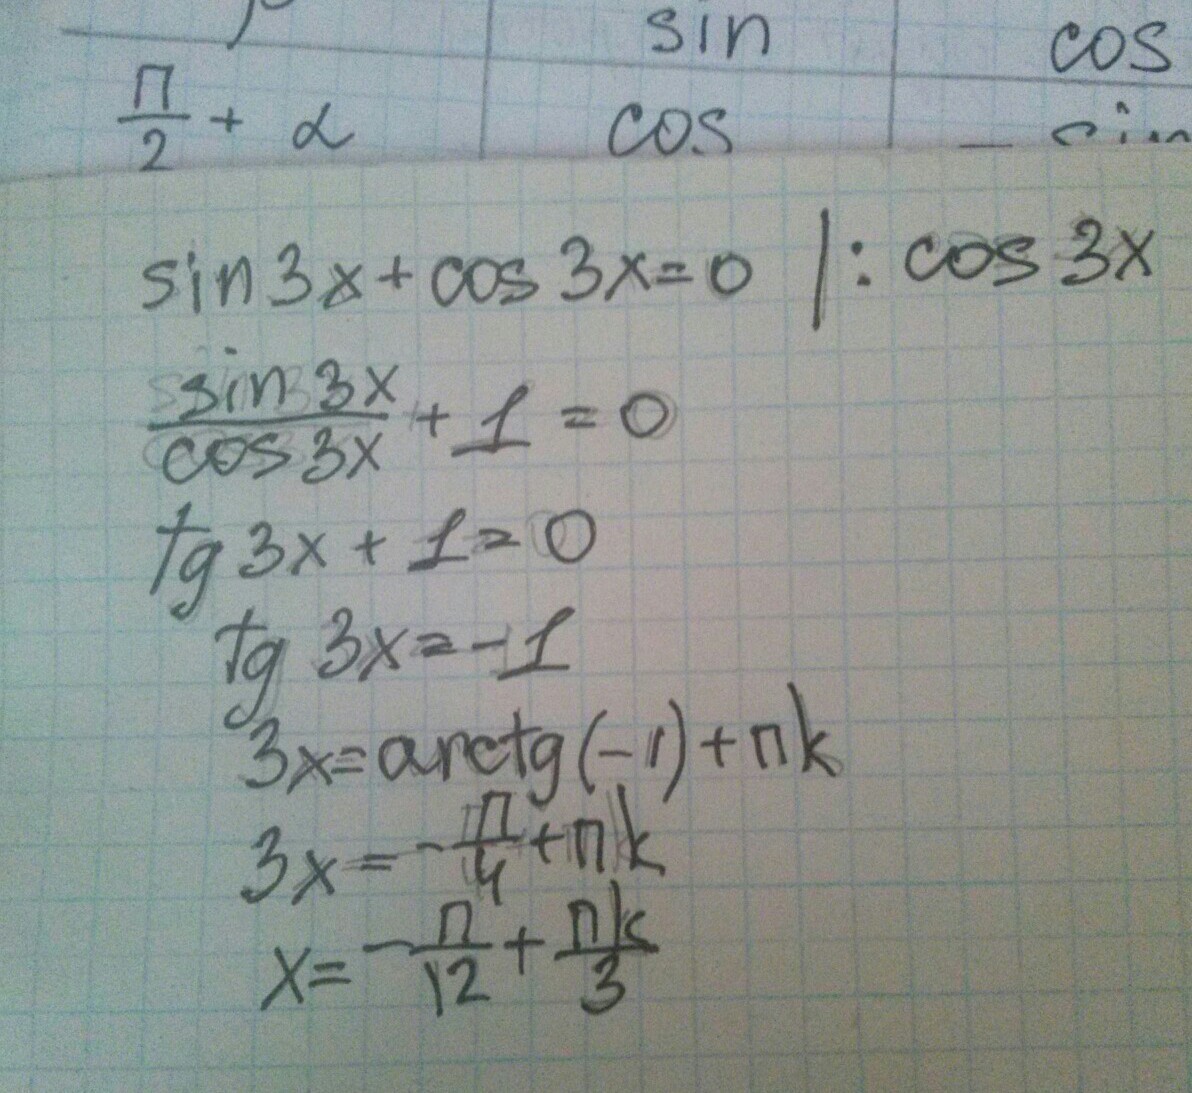 sin cos
π/2 + α cos - sin
sin 3x + cos 3x = 0 |: cos 3x
sin 3x / cos 3x + 1 = 0
tg 3x + 1 = 0
tg 3x = -1
3x = arctg(-1) + πk
3x = -π/4 + πk
x = -π/12 + πk/3